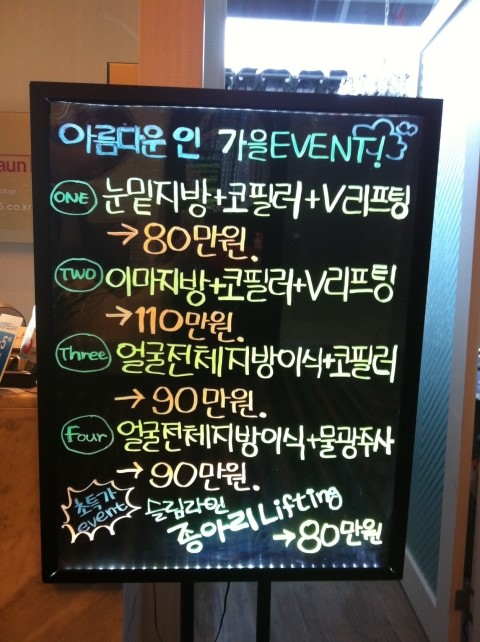 아름다운인 가을EVENT!
ONE 눈밑지방+코필러+V리프팅
→80만원.
TWO 이마지방+코필러+V리프팅
→110만원.
Three 얼굴전체지방이식+코필러
→90만원.
four 얼굴전체지방이식+물광주사
→90만원.
초특가 event
슬림라인
종아리Lifting
→80만원
aun
5.co.kr